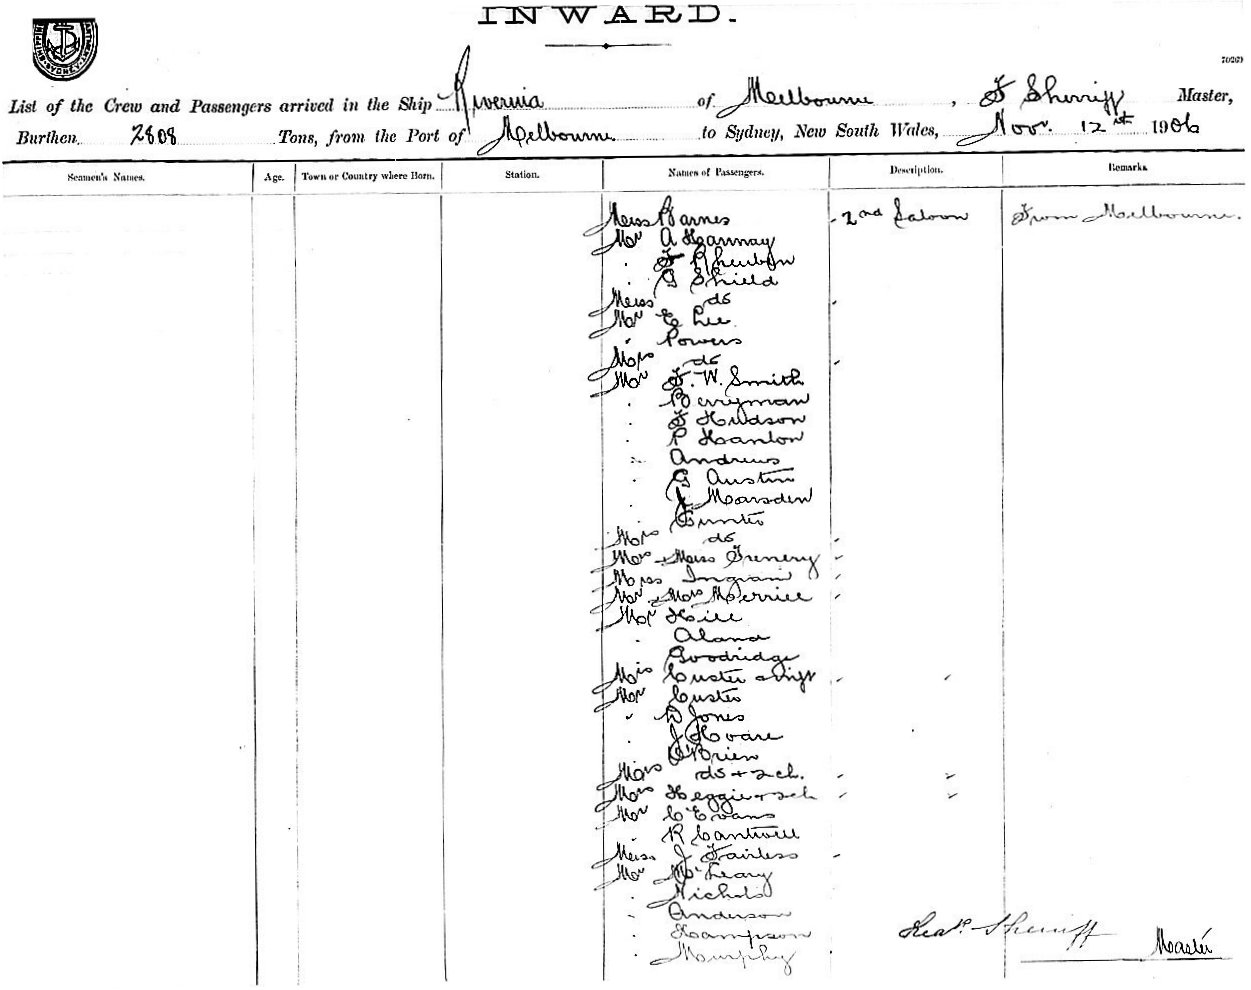 INWARD.
SYDNEY
List of the Crew and Passengers arrived in the Ship Riverina of Melbourne, F Sherriff Master,
Burthen 2808 Tons, from the Port of Melbourne to Sydney, New South Wales, Nov. 12st 1906
Seamen's Names. Age. Town or Country where Born. Station. Names of Passengers. Description. Remarks
Miss Barnes 2nd Saloon From Melbourne.
Mr A Hannay
F
G Shield
Miss do
Mr E Lee
" Powers
Mrs do
Mr F. W. Smith
Berryman
F Hudson
P Hanlon
Andrews
G Austin
J Marsden
Gunter
Mrs do
Mrs + Miss Grenery
Miss Ingram
Mr + Mrs Merrill
Mr Hill
Aland
Goodridge
Mrs Custer
Mr Custer
" D Jones
J Hoare
O'Brien
Mrs do + 2 ch.
Mrs Heggie + 2 ch
Mr C Evans
R Cantwell
Miss J Fairless
Mr McLeary
Nichols
Anderson
Hampson Sherriff Master
Murphy